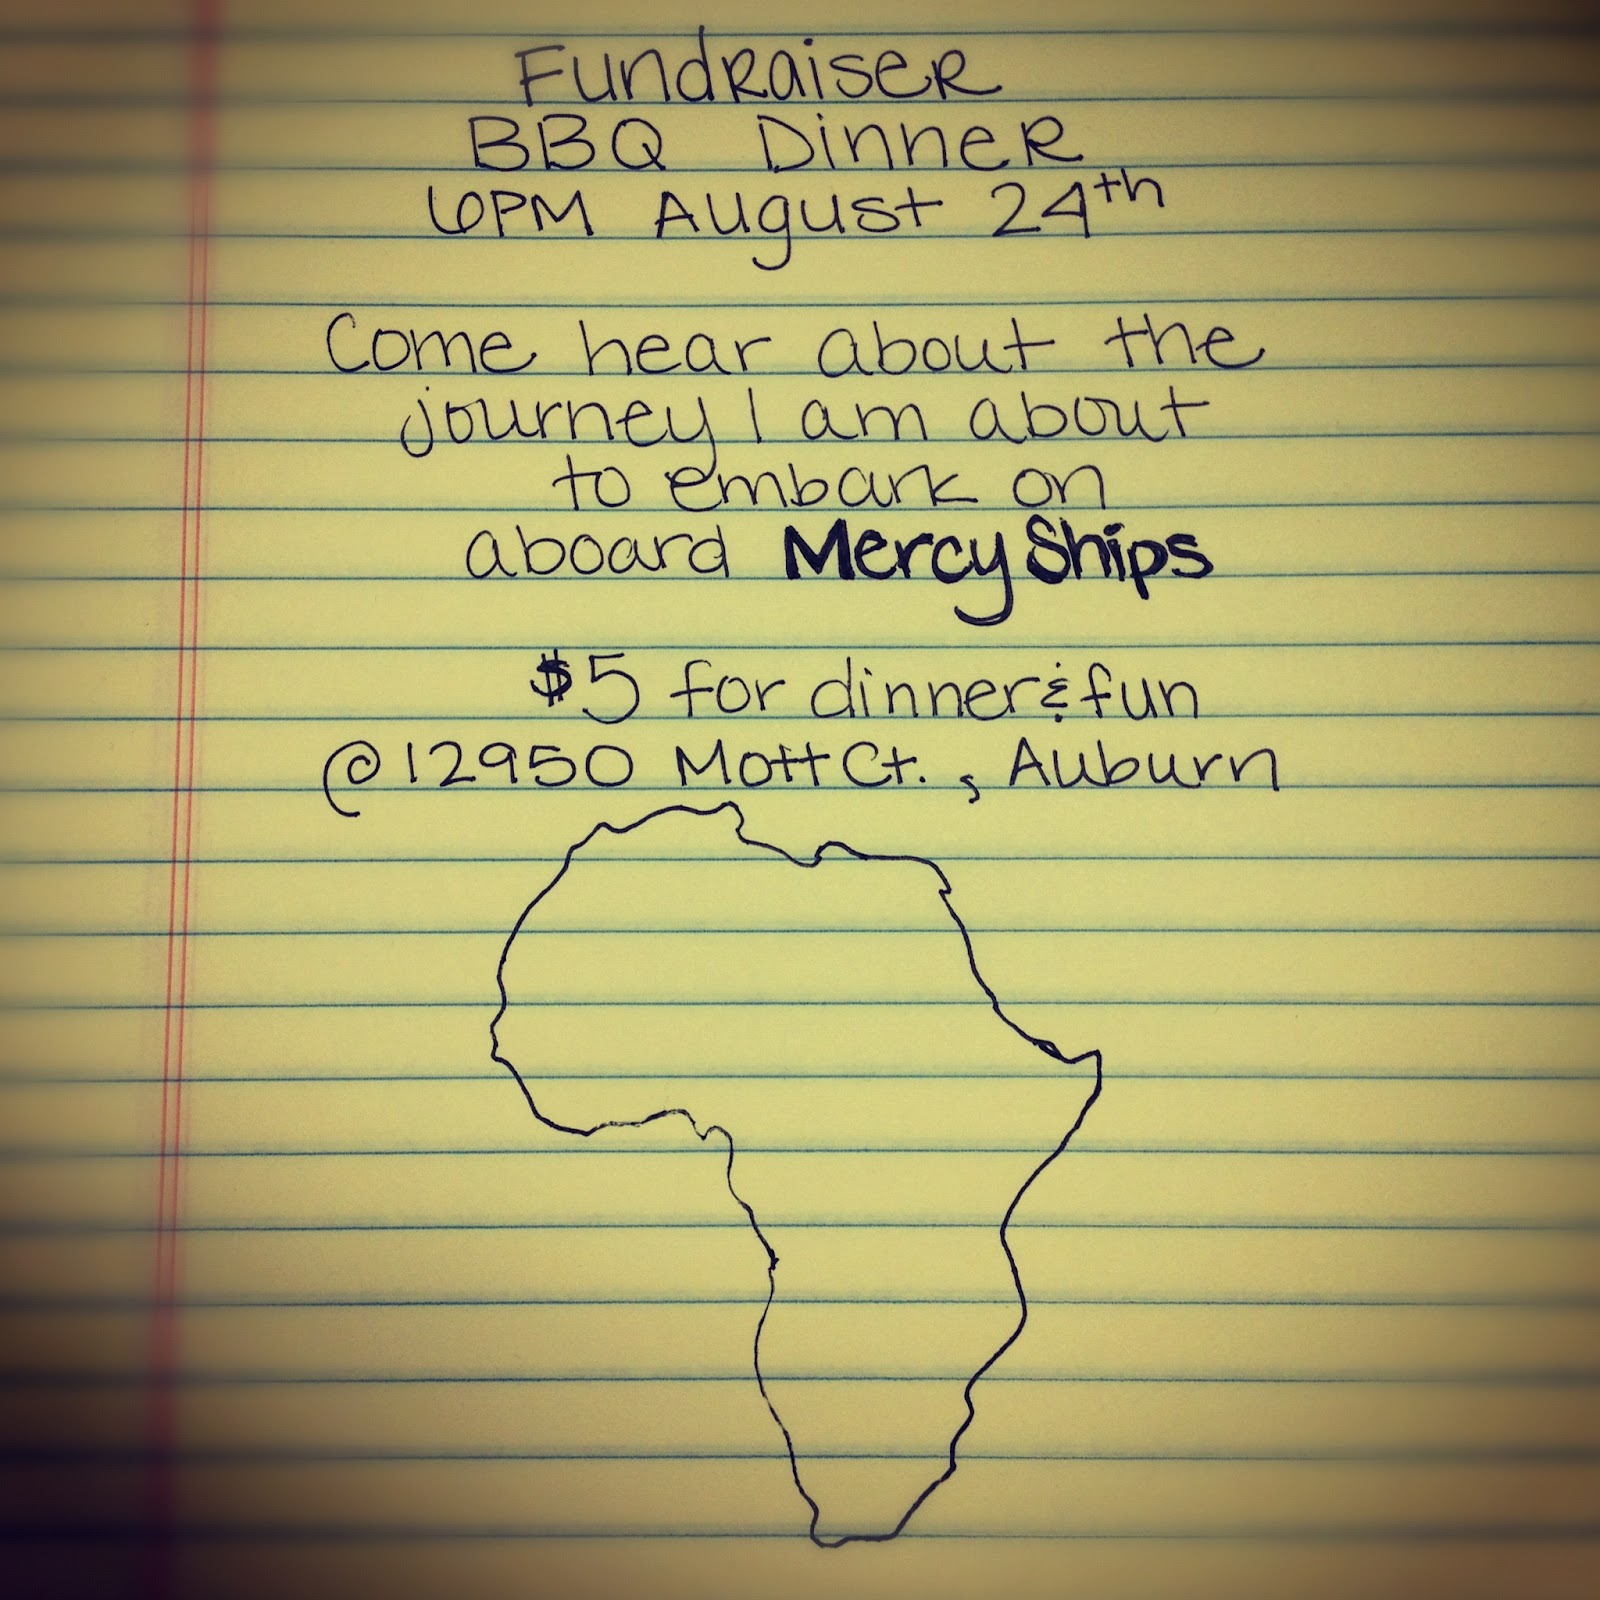 Fundraiser
BBQ Dinner
6PM August 24th
Come hear about the
journey I am about
to embark on
aboard Mercy Ships
$5 for dinner & fun
@ 12950 Mott Ct., Auburn